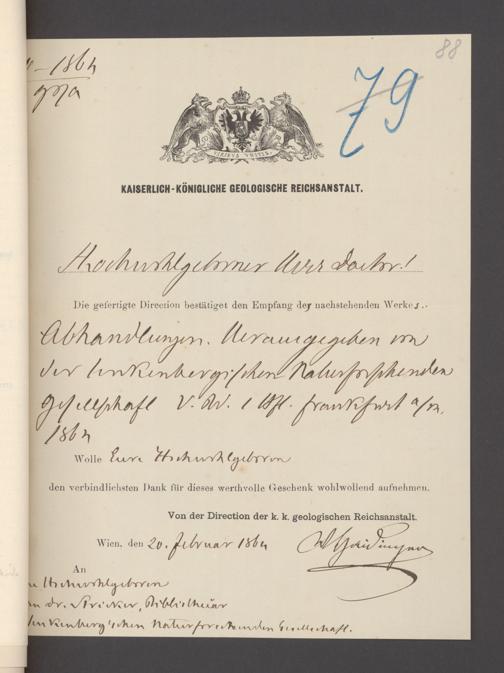 88
79
1864
VIRIBUS UNITIS.
KAISERLICH-KÖNIGLICHE GEOLOGISCHE REICHSANSTALT.
Hochwohlgeborner Herr Doctor!
Die gefertigte Direction bestätiget den Empfang des nachstehenden Werkes.
Abhandlungen. Herausgegeben von
der Senkenbergischen Naturforschenden
Gesellschaft V. Bd. 1 Hft. Frankfurt a/M.
1864
Wolle Eure Hochwohlgeboren
den verbindlichsten Dank für dieses werthvolle Geschenk wohlwollend aufnehmen.
Von der Direction der k. k. geologischen Reichsanstalt.
Wien, den 20. Februar 1864
W Haidinger
An
Hochwohlgeboren
Dr. Stricker, Bibliothekar
Senkenberg'schen Naturforschenden Gesellschaft.